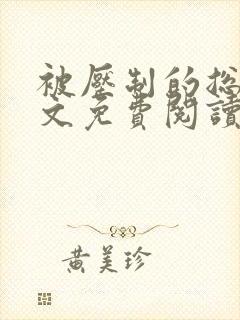 被壓制的総
文免費閱讀
黃美珍